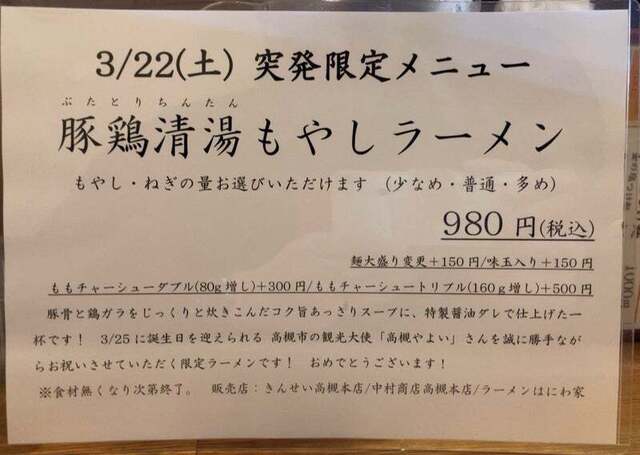 3/22(土) 突発限定メニュー
ぶたとりちんたん
豚鶏清湯もやしラーメン
もやし・ねぎの量お選びいただけます (少なめ・普通・多め)
980 円(税込)
麺大盛り変更+150円/味玉入り+150円
ももチャーシューダブル(80g増し)+300円/ももチャーシュートリプル(160g増し)+500円
豚骨と鶏ガラをじっくりと炊きこんだコク旨あっさりスープに、特製醤油ダレで仕上げた一
杯です! 3/25に誕生日を迎えられる 高槻市の観光大使「高槻やよい」さんを誠に勝手なが
らお祝いさせていただく限定ラーメンです! おめでとうございます!
※食材無くなり次第終了。 販売店:きんせい高槻本店/中村商店高槻本店/ラーメンはにわ家